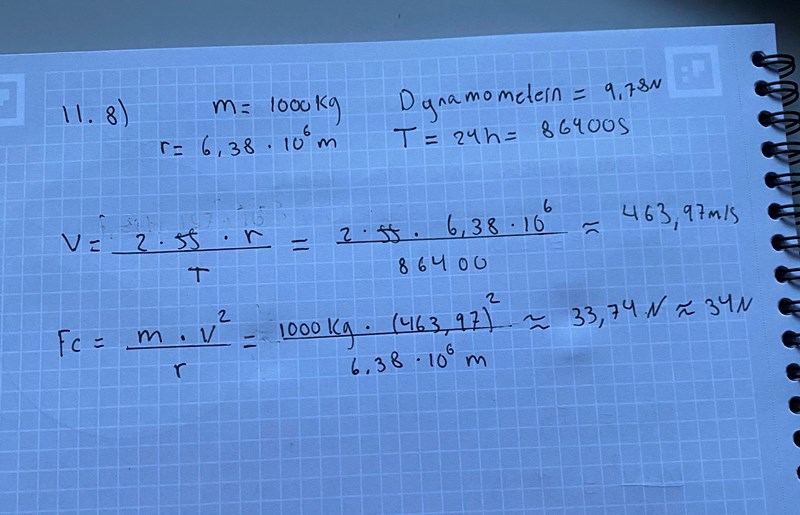 11. 8) m = 1000 kg Dynamometern = 9,78N
r = 6,38 · 10⁶ m T = 24h = 86400S
V = 2 · π · r / T = 2 · π · 6,38 · 10⁶ / 86400 ≈ 463,97 m/s
Fc = m · v² / r = 1000 kg · (463,97)² / 6,38 · 10⁶ m ≈ 33,74 N ≈ 34N